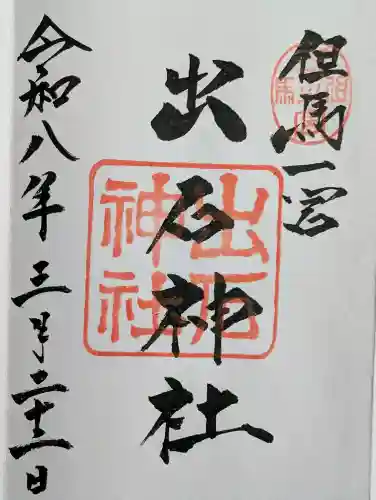 但馬一宮
出石神社
出石
神社
令和八年三月二十二日